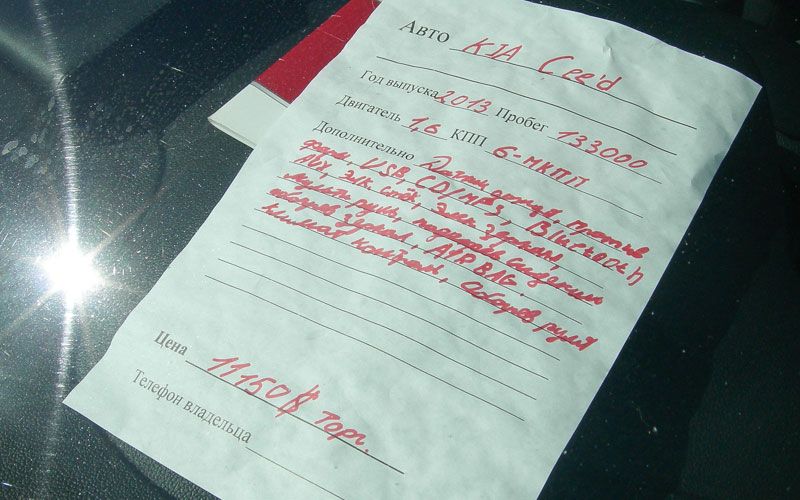 Авто KIA Cee'd
Год выпуска 2013 Пробег 133000
Двигатель 1,6 КПП 6-МКПП
Дополнительно Датчик дождя, против
фары, USB, CD/MP3, Bluetooth
ABX, эл. стёк, элек зеркал,
мульти руль, подогрев сидении
обогрев зеркал, AIR BAG.
климат контрол, обогрев руля
Цена 11150$ торг.
Телефон владельца